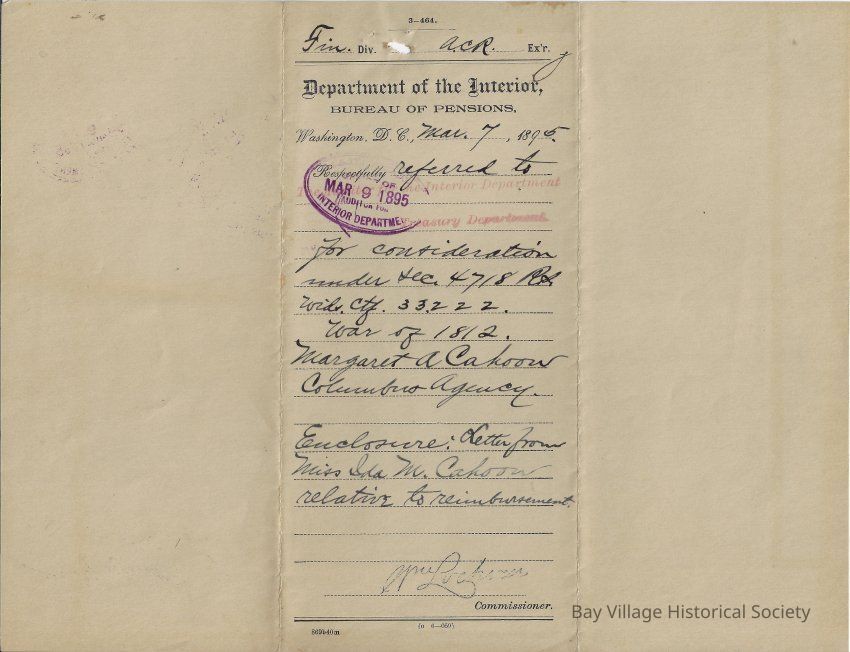 3—464.
Fin. Div. A.C.R. Ex'r.
Department of the Interior,
BUREAU OF PENSIONS,
Washington, D. C., Mar. 7, 1895.
Respectfully referred to
the Interior Department
Treasury Department.
MAR 9 1895
AUDITOR FOR
INTERIOR DEPARTME
for consideration
under Sec. 4718 R.S.
Wid. Ctf. 33222.
War of 1812.
Margaret A Cahoon
Columbus Agency.
Enclosure: Letter from
Miss Ida M. Cahoon
relative to reimbursement.
Wm Lochren
Commissioner.
Bay Village Historical Society